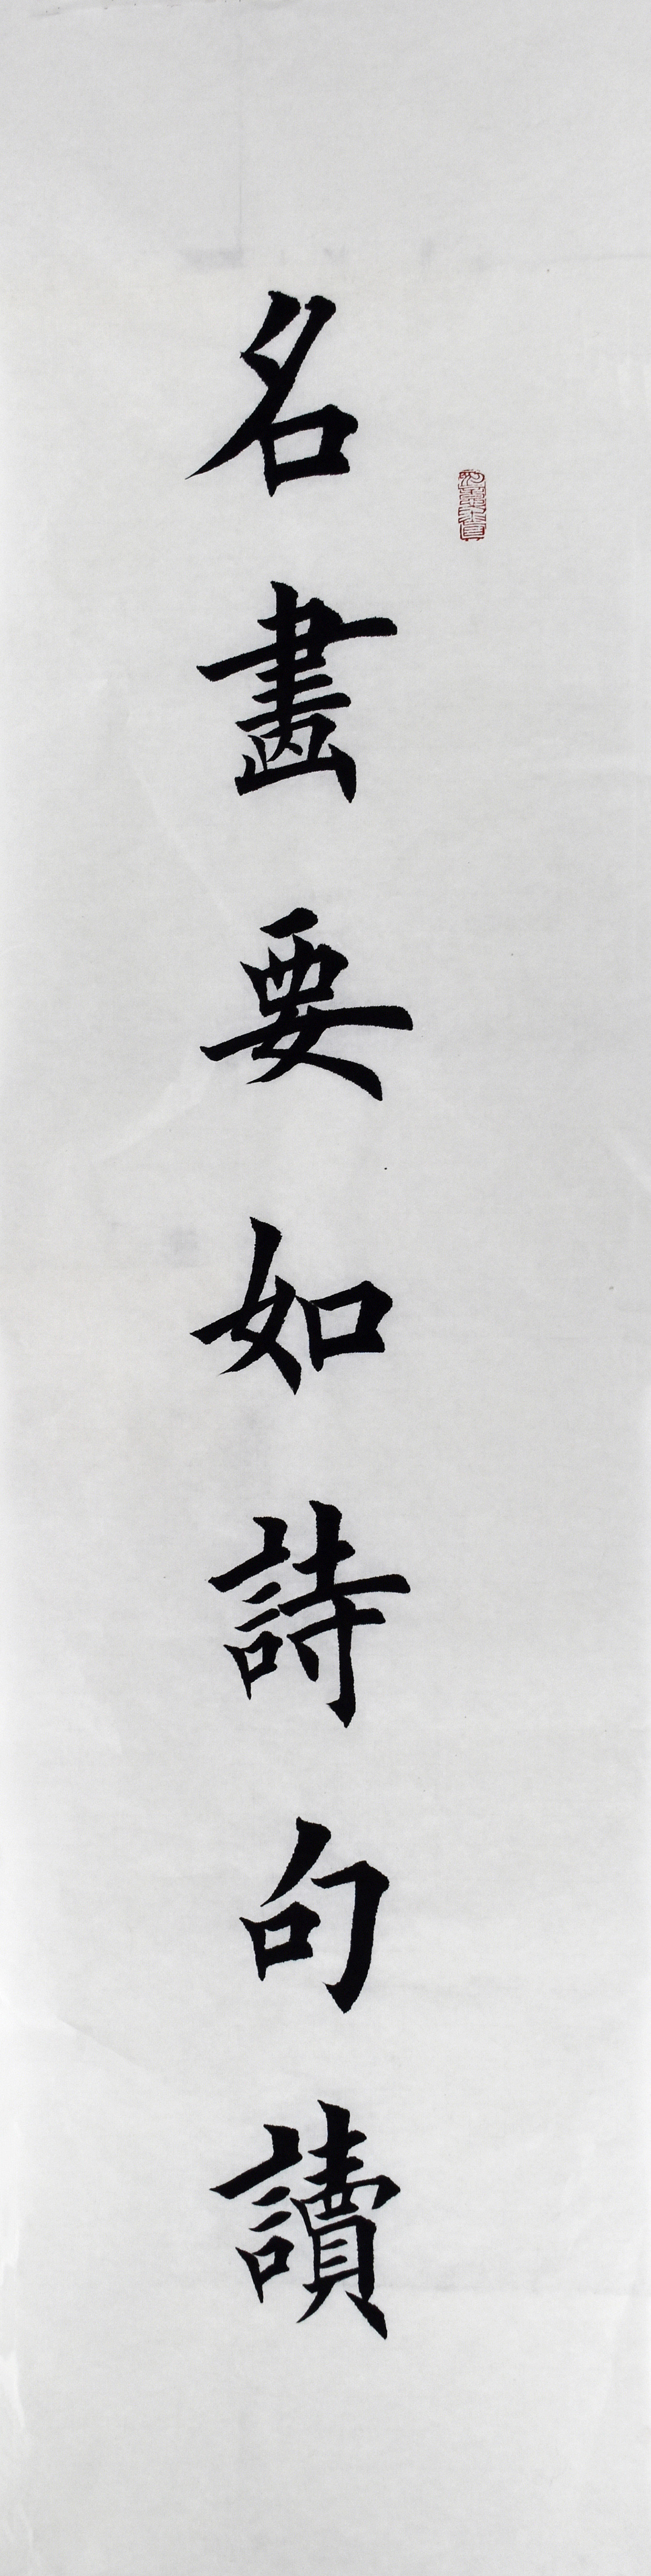 名畫要如詩句讀